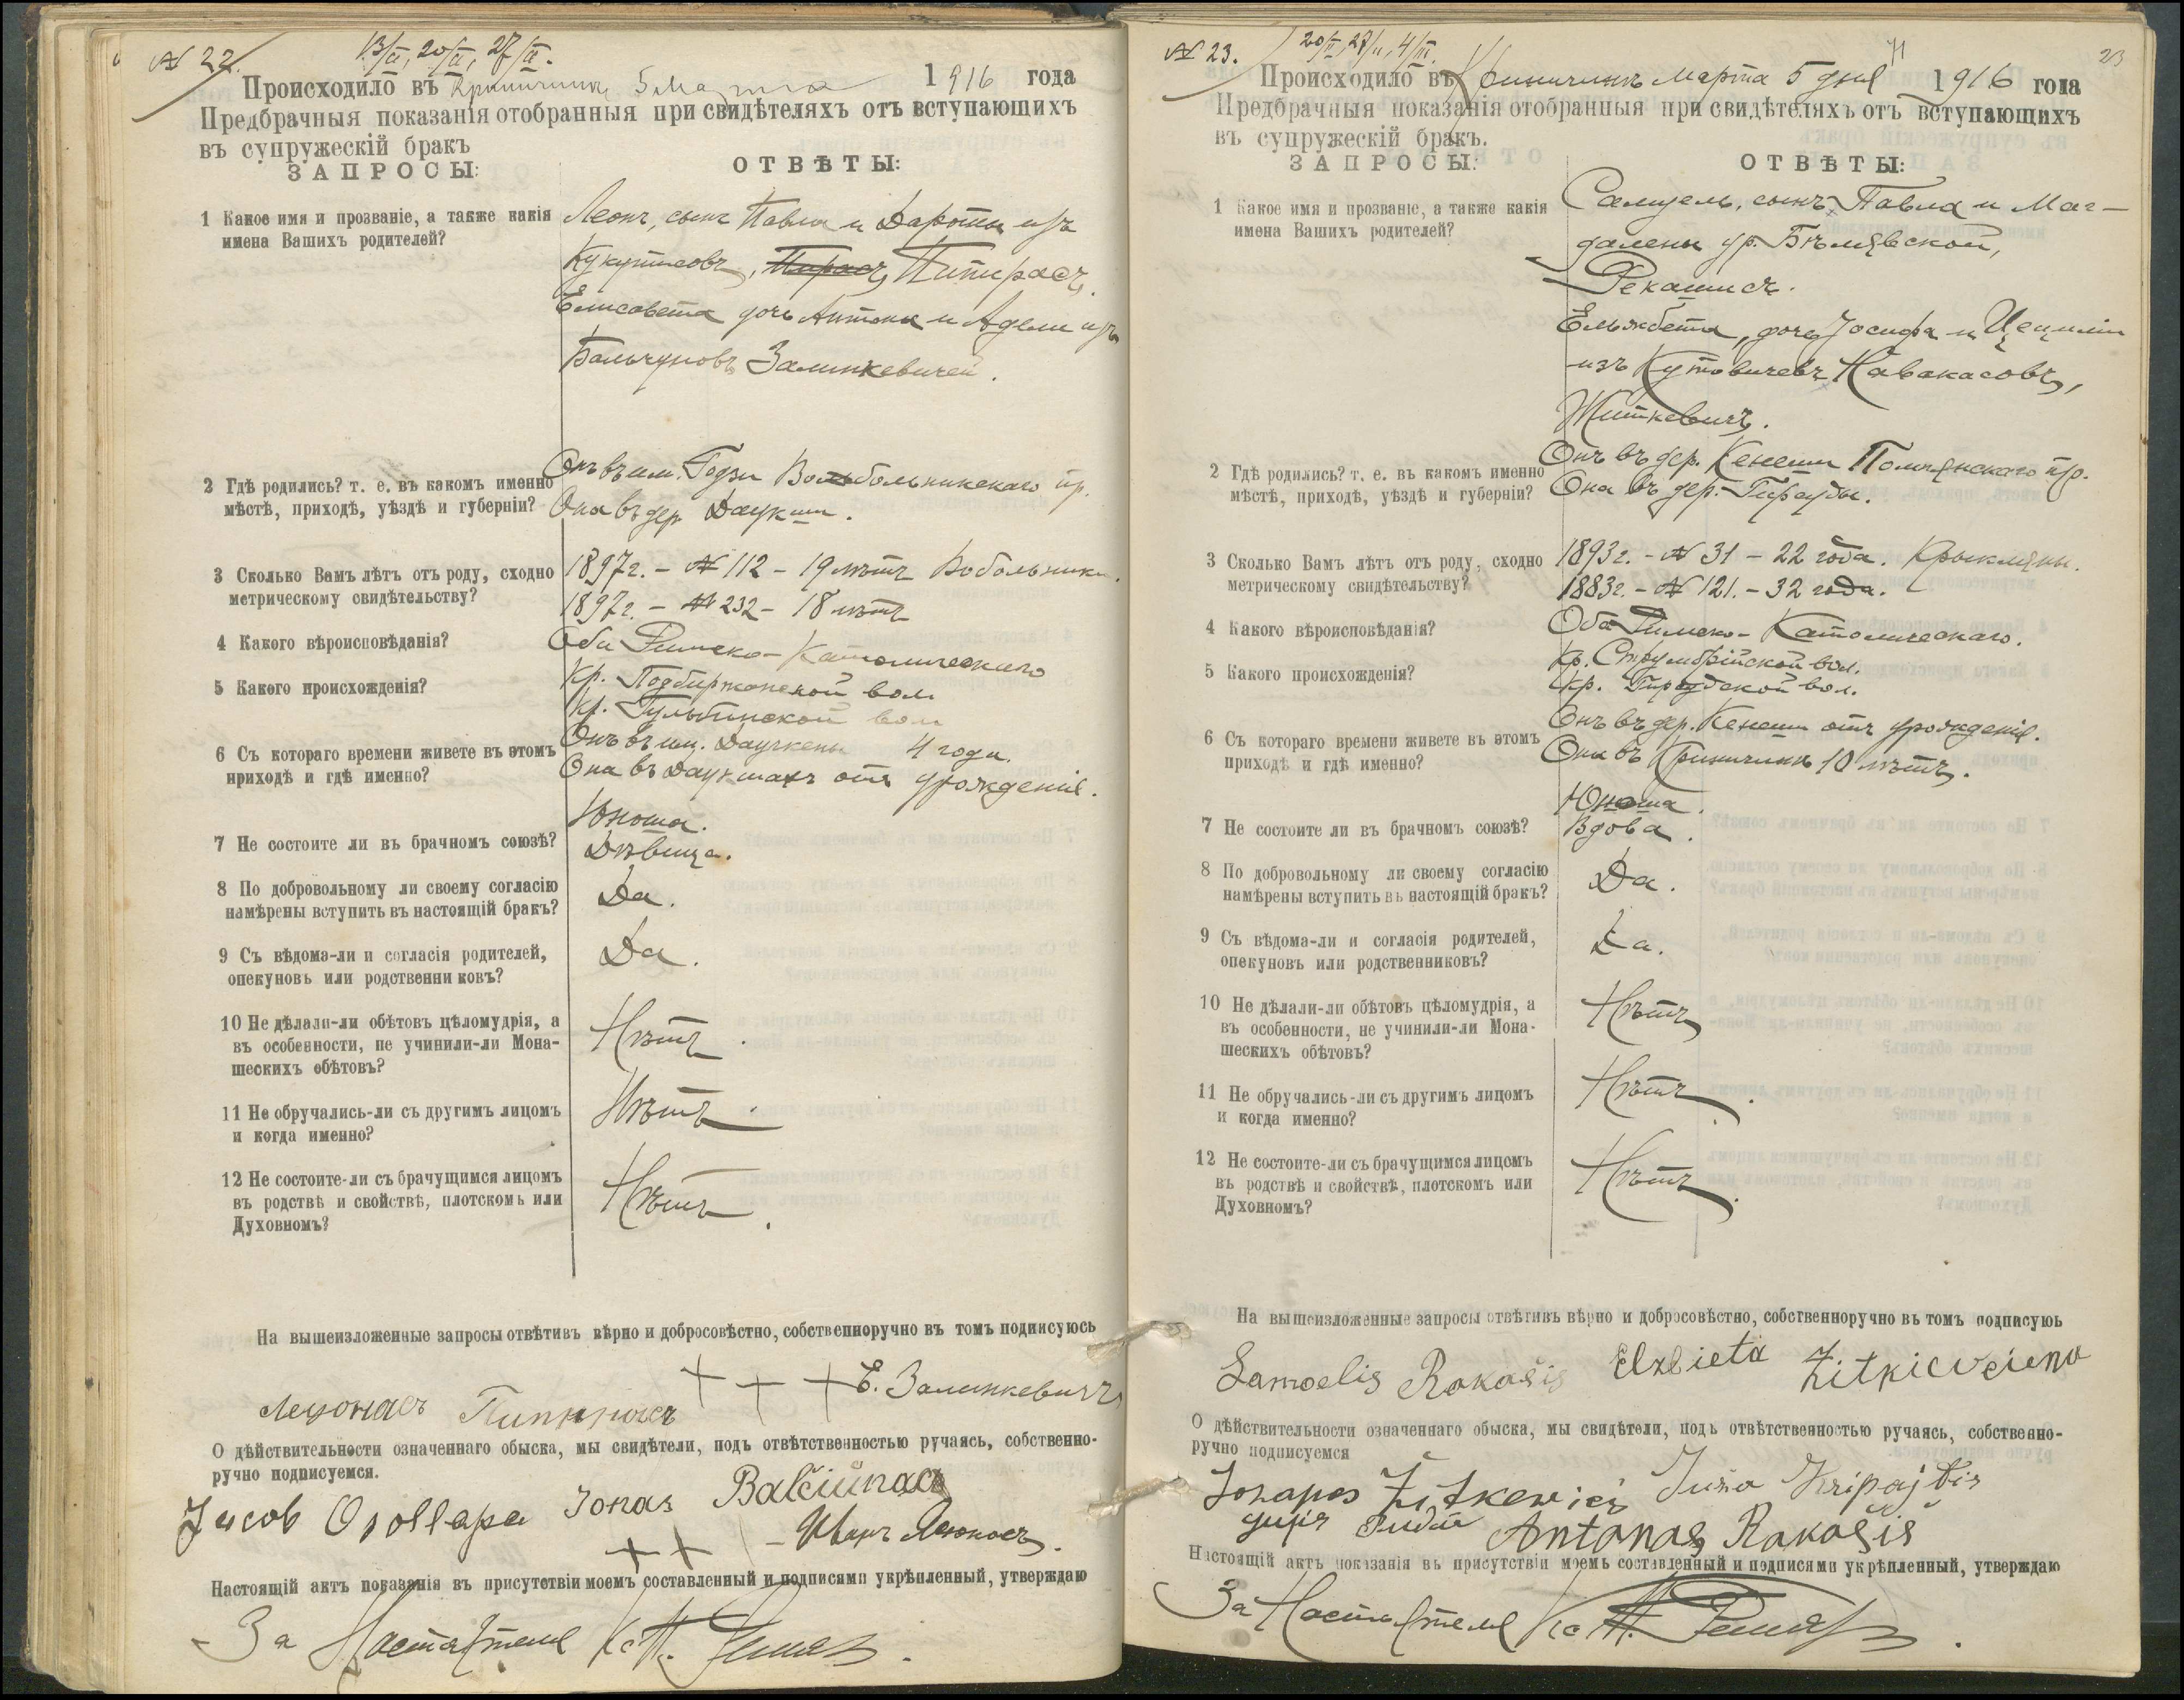 № 22.
13/II, 20/II, 27/II.
Происходило въ Криничинѣ 5 Марта 1916 года
Предбрачныя показанія отобранныя при свидѣтеляхъ отъ вступающихъ
въ супружескій бракъ
ЗАПРОСЫ:
ОТВѢТЫ:
1 Какое имя и прозваніе, а также какія
имена Вашихъ родителей?
Леонъ, сынъ Павла и Дароты изъ
Елисавета дочь Антона и Адели изъ
Бальчуновъ Залинкевичей.
2 Гдѣ родились? т. е. въ какомъ именно
мѣстѣ, приходѣ, уѣздѣ и губерніи?
Онъ въ им.
Она въ дер. Даукши.
3 Сколько Вамъ лѣтъ отъ роду, сходно
метрическому свидѣтельству?
1897г. - № 112 - 19 лѣтъ Вобольники.
1897г. - № 232 - 18 лѣтъ
4 Какого вѣроисповѣданія?
Оба Римско-Католическаго
5 Какого происхожденія?
Кр. Подбиржанской вол.
Кр. Гульбинской вол.
6 Съ котораго времени живете въ этомъ
приходѣ и гдѣ именно?
Онъ въ им. 4 года.
Она въ Даукшахъ отъ урожденія.
7 Не состоите ли въ брачномъ союзѣ?
Юноша.
Дѣвица.
8 По добровольному ли своему согласію
намѣрены вступить въ настоящій бракъ?
Да.
9 Съ вѣдома-ли и согласія родителей,
опекуновъ или родственни ковъ?
Да.
10 Не дѣлали-ли обѣтовъ цѣломудрія, а
въ особенности, не учинили-ли Мона-
шескихъ обѣтовъ?
Нѣтъ.
11 Не обручались-ли съ другимъ лицомъ
и когда именно?
Нѣтъ.
12 Не состоите-ли съ брачущимся лицомъ
въ родствѣ и свойствѣ, плотскомъ или
Духовномъ?
Нѣтъ.
На вышеизложенные запросы отвѣтивъ вѣрно и добросовѣстно, собственноручно въ томъ подписуюсь
+ + + Е. Залинкевичъ
О дѣйствительности означеннаго обыска, мы свидѣтели, подъ отвѣтственностью ручаясь, собственно-
ручно подписуемся.
Jonas Balčiūnas
+ +
Настоящій актъ показанія въ присутствіи моемъ составленный и подписями укрѣпленный, утверждаю
За Настоятеля Кс.
№ 23.
20/II, 27/II, 4/III.
23
Происходило въ Криничинѣ Марта 5 дня 1916 года
Предбрачныя показанія отобранныя при свидѣтеляхъ отъ вступающихъ
въ супружескій бракъ.
ЗАПРОСЫ:
ОТВѢТЫ:
1 Какое имя и прозваніе, а также какія
имена Вашихъ родителей?
Самуель, сынъ Павла и Маг-
далены ур. Бѣлявской,
Рекашисъ.
Ельжбета, дочь Іосифа и Цециліи
изъ Кутовичевъ Навакасовъ,
Житкевичъ.
2 Гдѣ родились? т. е. въ какомъ именно
мѣстѣ, приходѣ, уѣздѣ и губерніи?
Онъ въ дер. Кенеши пр.
Она въ дер.
3 Сколько Вамъ лѣтъ отъ роду, сходно
метрическому свидѣтельству?
1893г. - № 31 - 22 года.
1883г. - № 121. - 32 года.
4 Какого вѣроисповѣданія?
Оба Римско-Католическаго.
5 Какого происхожденія?
Кр. вол.
Кр. вол.
6 Съ котораго времени живете въ этомъ
приходѣ и гдѣ именно?
Онъ въ дер. Кенеши отъ урожденія.
Она въ Криничинѣ 10 лѣтъ.
7 Не состоите ли въ брачномъ союзѣ?
Юноша.
Вдова.
8 По добровольному ли своему согласію
намѣрены вступить въ настоящій бракъ?
Да.
9 Съ вѣдома-ли и согласія родителей,
опекуновъ или родственниковъ?
Да.
10 Не дѣлали-ли обѣтовъ цѣломудрія, а
въ особенности, не учинили-ли Мона-
шескихъ обѣтовъ?
Нѣтъ
11 Не обручались-ли съ другимъ лицомъ
и когда именно?
Нѣтъ.
12 Не состоите-ли съ брачущимся лицомъ
въ родствѣ и свойствѣ, плотскомъ или
Духовномъ?
Нѣтъ.
На вышеизложенные запросы отвѣтивъ вѣрно и добросовѣстно, собственноручно въ томъ подписуюь
Samoelis Rakašis Elzbieta
О дѣйствительности означеннаго обыска, мы свидѣтели, подъ отвѣтственностью ручаясь, собственно-
ручно подписуемся
Antanas Rakašis
Настоящій актъ показанія въ присутствіи моемъ составленный и подписями укрѣпленный, утверждаю
За Настоятеля Кс.